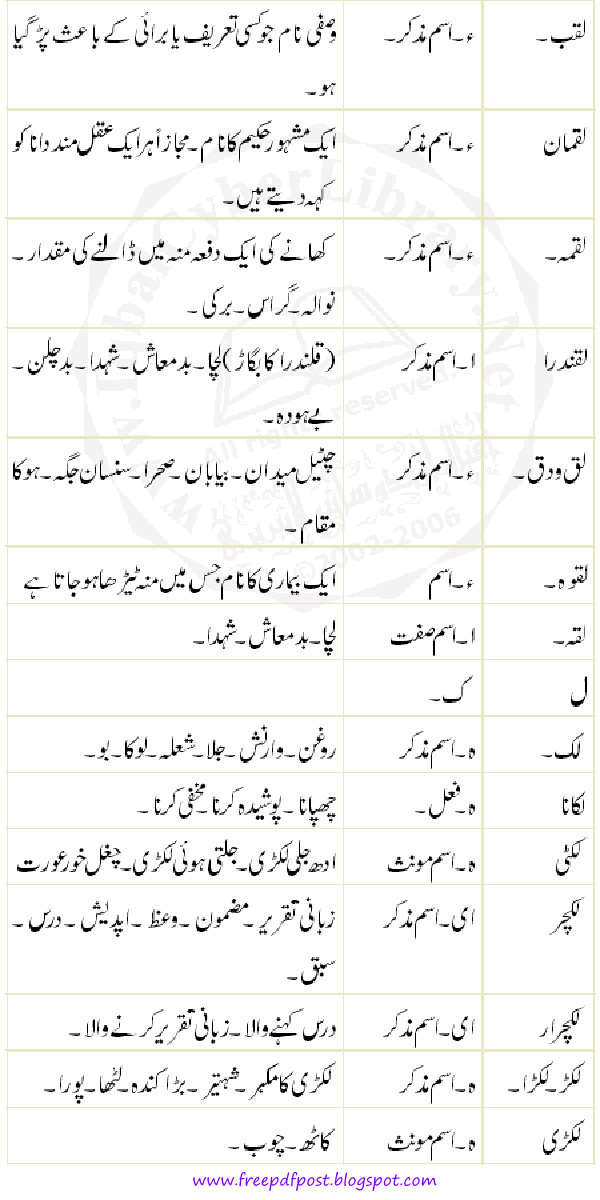 لقب۔ ء۔اسم مذکر۔ وصفی نام جو کسی تعریف یا برائی کے باعث پڑ گیا
ہو۔
لقمان ء۔اسم مذکر ایک مشہور حکیم کا نام۔مجازاً ہر ایک عقل مند دانا کو
کہہ دیتے ہیں۔
لقمہ۔ ء۔اسم مذکر۔ کھانے کی ایک دفعہ منہ میں ڈالنے کی مقدار۔
نوالہ۔گراس۔برکی۔
لقندرا ا۔اسم مذکر (قلندرا کا بگاڑ)لچا۔بدمعاش۔شہدا۔بدچلن۔
بےہودہ۔
لق ودق۔ ء۔اسم مذکر چٹیل میدان۔بیابان۔صحرا۔سنسان جگہ۔ہوکا
مقام۔
لقوہ۔ ء۔اسم ایک بیماری کا نام جس میں منہ ٹیڑھا ہوجاتا ہے
لقہ۔ ا۔اسم صفت لچا۔بدمعاش۔شہدا۔
ل ک۔
لک۔ ہ۔اسم مذکر روغن۔وارنش۔جلا۔شعلہ۔لوکا۔بو۔
لکانا ہ۔فعل۔ چھپانا۔پوشیدہ کرنا۔مخفی کرنا۔
لکٹی ہ۔اسم مونث ادھ جلی لکڑی۔جلتی ہوئی لکڑی۔چغل خور عورت
لکچر ای۔اسم مذکر زبانی تقریر۔مضمون۔وعظ۔اپدیش۔درس۔
سبق۔
لکچرار ای۔اسم مذکر درس کہنے والا۔زبانی تقریر کرنے والا۔
لکڑ۔لکڑا۔ ہ۔اسم مذکر لکڑی کا مکبر۔شہتیر۔بڑا کندہ۔لٹھا۔پورا۔
لکڑی ہ۔اسم مونث کاٹھ۔چوب۔
www.freepdfpost.blogspot.com
www.IqbalCyberLibrary.Net
All rights reserved
©2002-2006